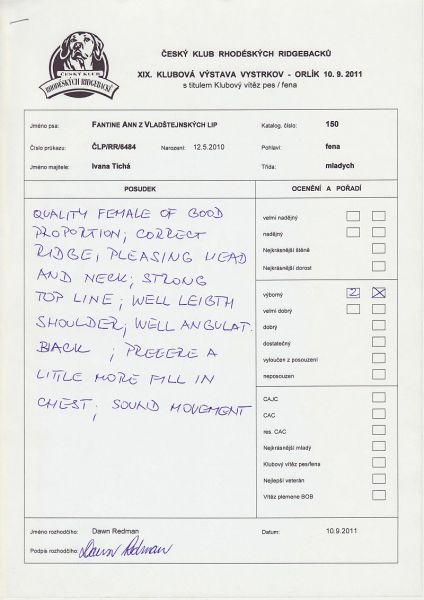 ČESKÝ KLUB
RHODÉSKÝCH RIDGEBACKŮ
ČESKÝ KLUB RHODÉSKÝCH RIDGEBACKŮ
XIX. KLUBOVÁ VÝSTAVA VYSTRKOV - ORLÍK 10. 9. 2011
s titulem Klubový vítěz pes / fena
Jméno psa: FANTINE ANN Z VLADŠTEJNSKÝCH LIP Katalog. číslo: 150
Číslo průkazu: ČLP/RR/6484 Narození: 12.5.2010 Pohlaví: fena
Jméno majitele: Ivana Tichá Třída: mladych
POSUDEK OCENĚNÍ A POŘADÍ
QUALITY FEMALE OF GOOD
PROPORTION; CORRECT
RIDGE; PLEASING HEAD
AND NECK; STRONG
TOP LINE; WELL LEIGTH
SHOULDER; WELL ANGULAT.
BACK ; PREFERE A
LITTLE MORE FILL IN
CHEST; SOUND MOVEMENT
velmi nadějný
nadějný
Nejkrásnější štěně
Nejkrásnější dorost
výborný 2 X
velmi dobrý
dobrý
dostatečný
vyloučen z posouzení
neposouzen
CAJC
CAC
res. CAC
Nejkrásnější mladý
Klubový vítěz pes/fena
Nejlepší veterán
Vítěz plemene BOB
Jméno rozhodčího: Dawn Redman Datum: 10.9.2011
Podpis rozhodčího: Dawn Redman